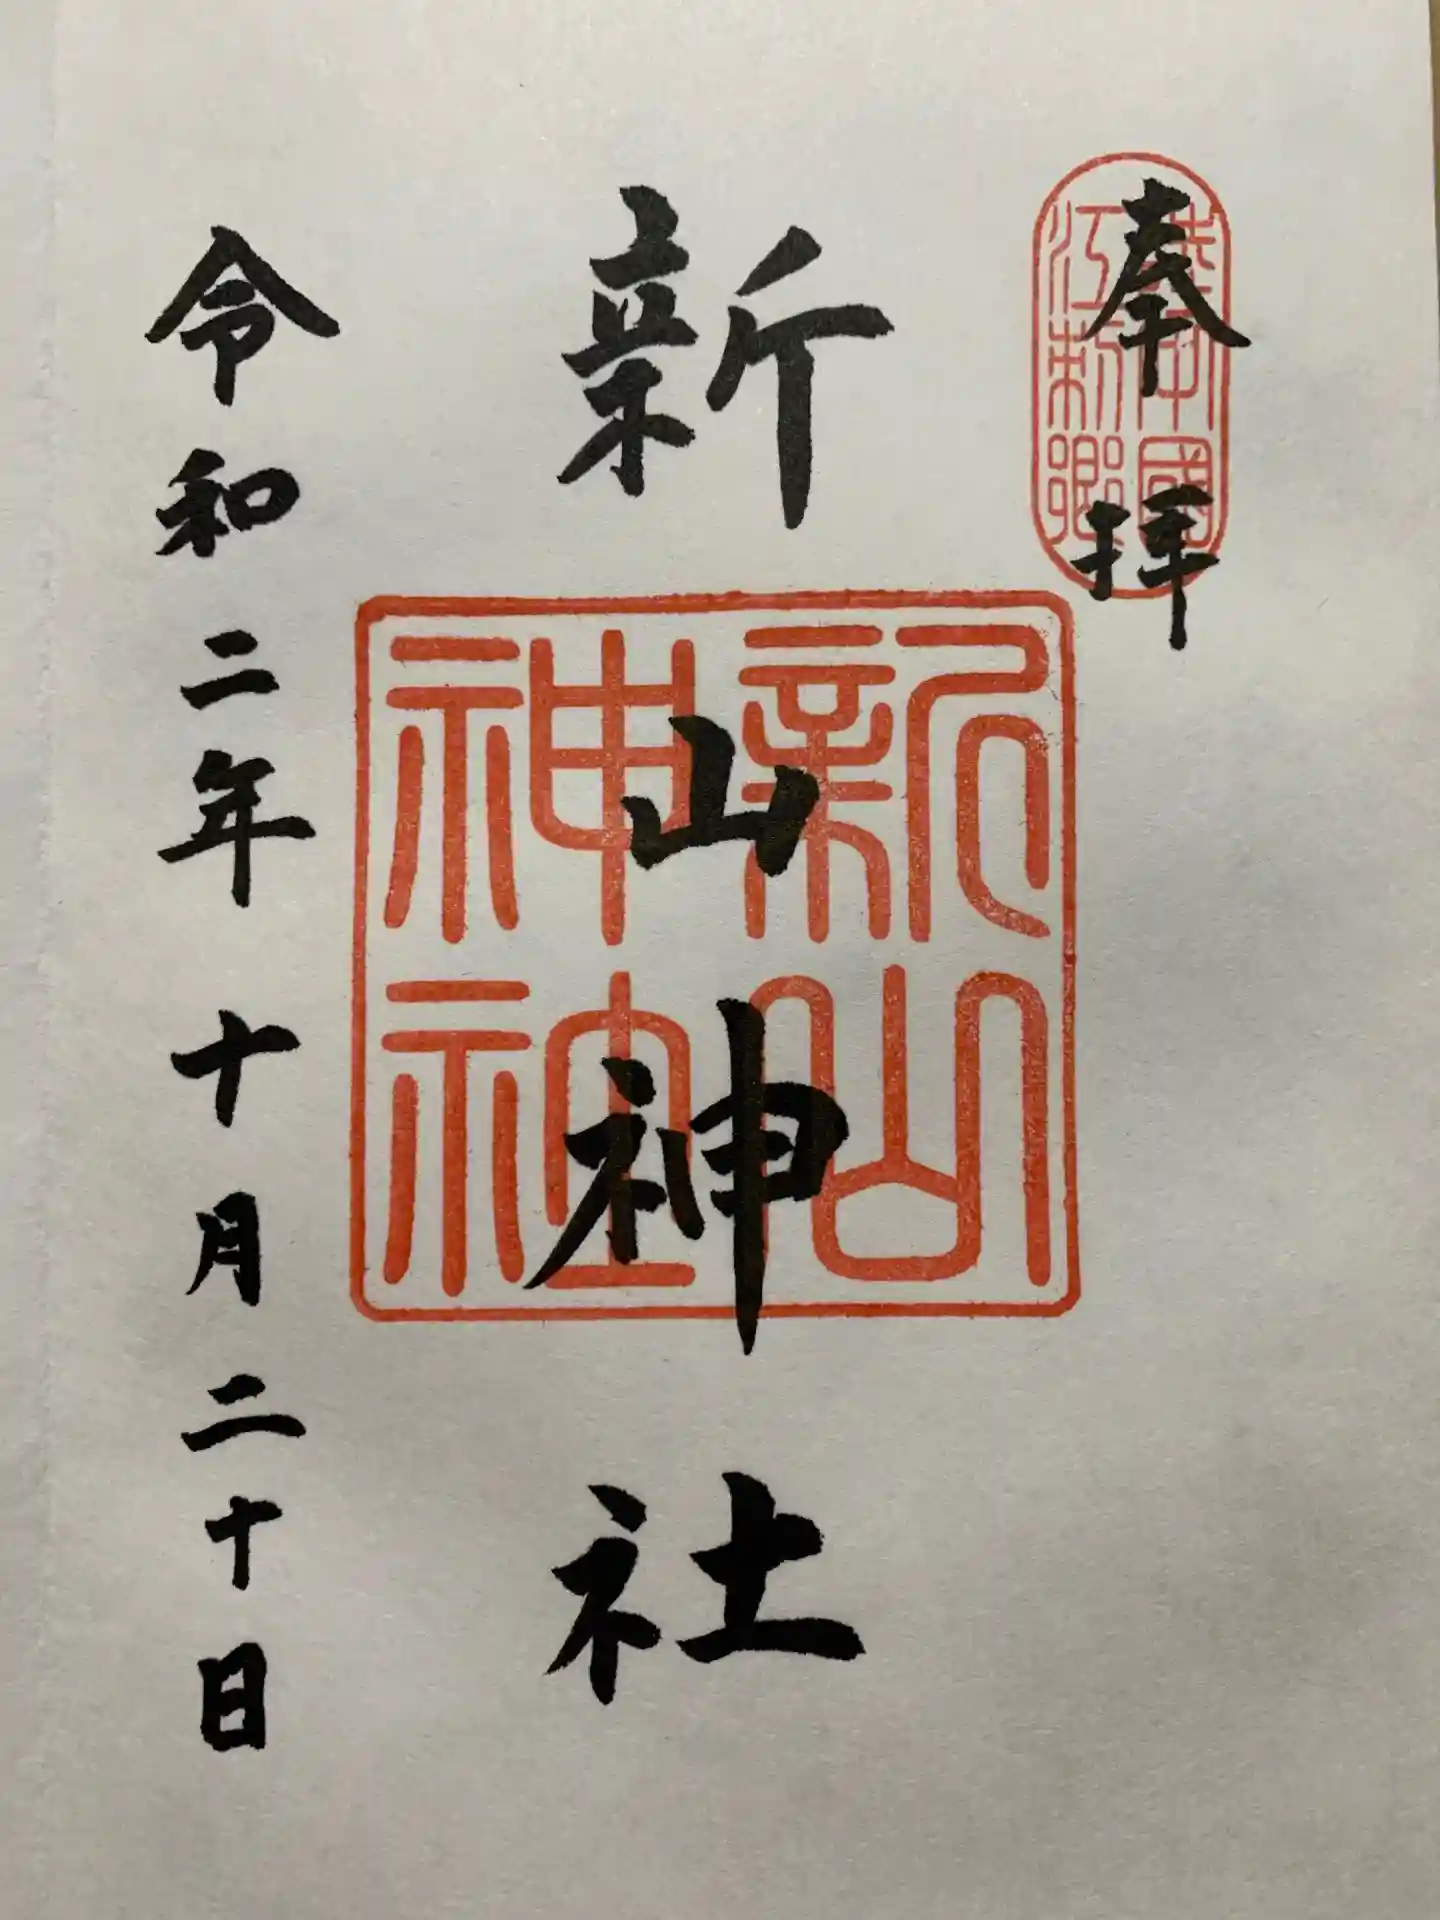 奉拝
陸中國
江刺郷
新山神社
新山
神社
令和二年十月二十日